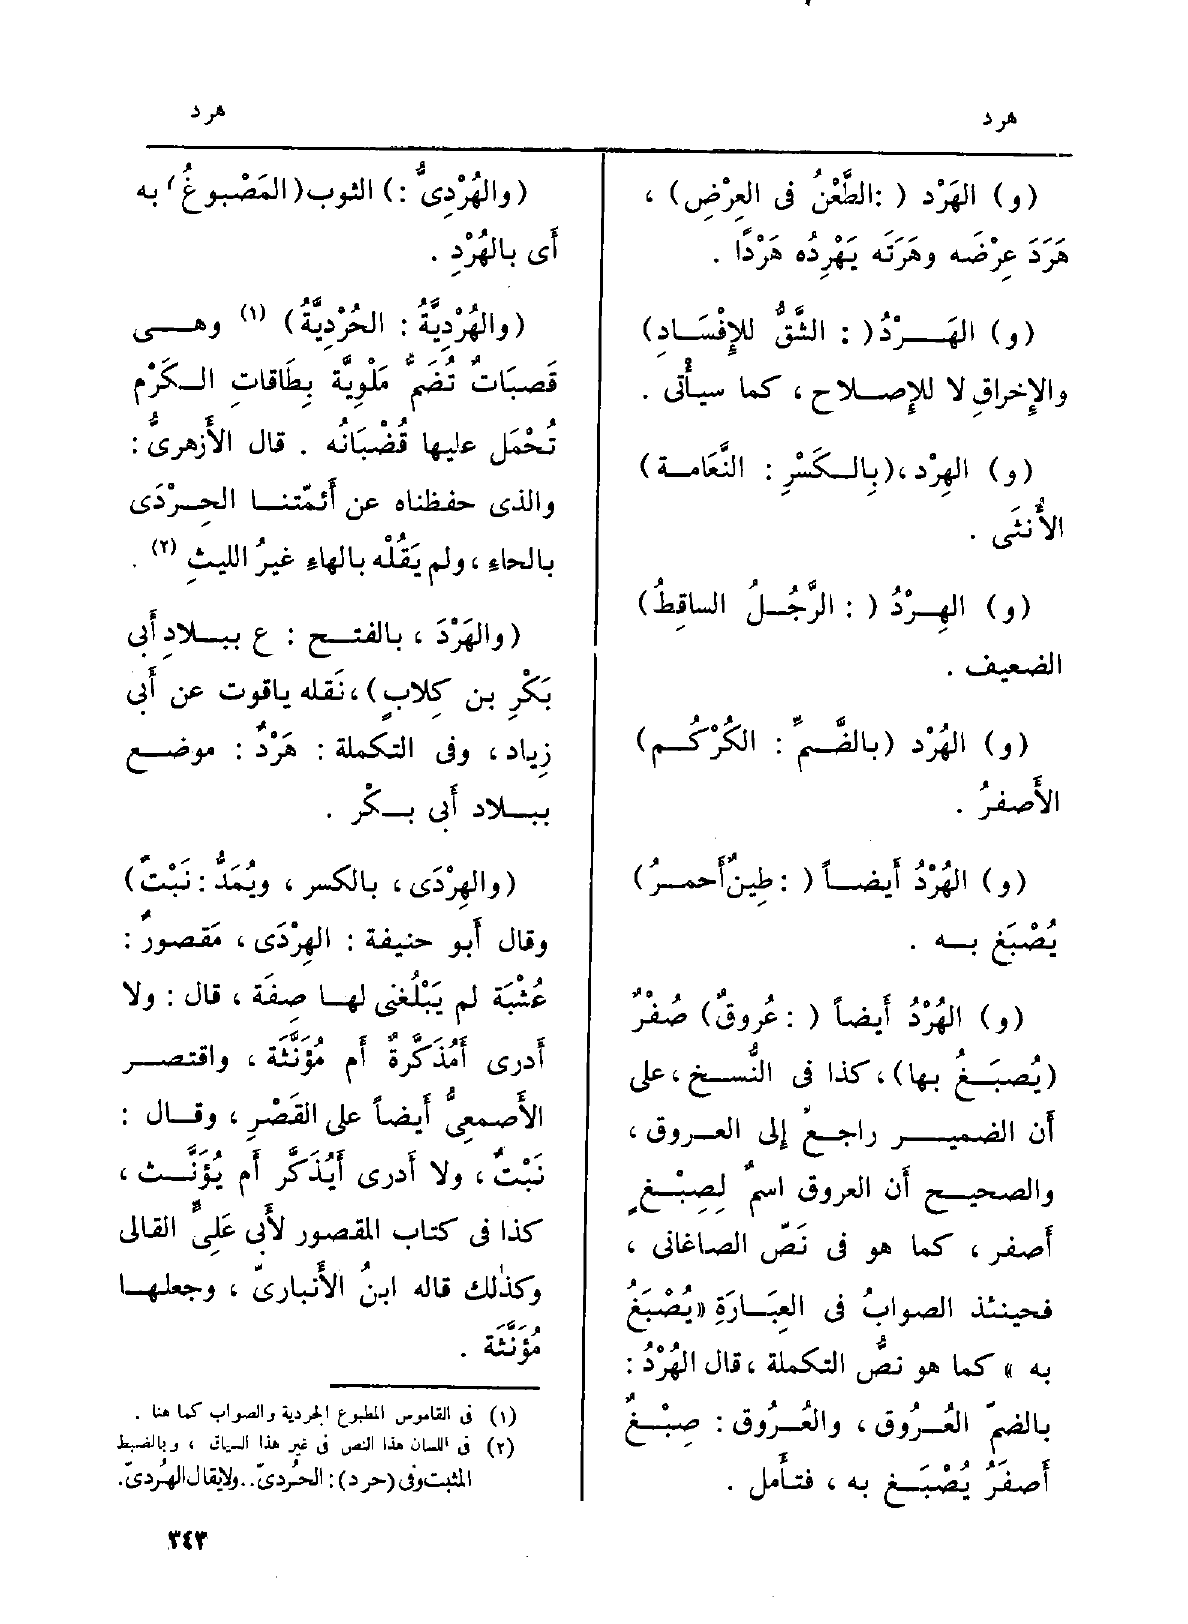 هرد
هرد
(و) الهَرْد ( : الطَّعْنُ فى العِرْضِ) ،
هَرَدَ عِرْضَه وهَرَتَه يَهْرِدُه هَرْدًا .
(و) الهَـرْدُ( : الشَّقُّ للإِفْسَـادِ)
والإِخراقِ لا للإِصلاح ، كما سيأْتى .
(و) الهِرْد ، (بِالكَسْرِ : النَّعَامـة)
الأُنثَى .
(و) الهِـرْدُ ( : الرَّجُـلُ الساقِطُ)
الضعيف .
(و) الهُرْد (بالضَّـمِّ : الكُرْكُـم)
الأَصفرُ .
(و) الهُرْدُ أَيضـاً ( : طِينٌ أَحمـرُ)
يُصْبَغ بـه .
(و) الهُرْدُ أَيضاً ( : عُروقٌ) صُفْرٌ
(يُصبَـغُ بها) ، كذا فى النُّسـخ ، على
أَن الضميـر راجـعٌ إلى العـروق ،
والصحيـح أَن العروق اسمٌ لِصِبْـغٍ
أَصفر ، كما هو فى نَصّ الصاغانى ،
فحينئذ الصوابُ فى العِبَارَةِ «يُصْبَغُ
به » كما هو نصُّ التكملة ، قال الهُرْدُ :
بالضمّ العُـرُوق ، والعُـرُوق : صِبْـغٌ
أَصفَرُ يُصْبَـغ به ، فتأَمل .
(والهُرْدِىُّ : ) الثوب (المَصْبوغُ) به
أَى بالهُرْدِ .
(والهُرْدِيَّةُ : الحُرْدِيَّةُ) (١) وهــى
قَصبَاتٌ تُضَمُّ مَلْوِيَّة بِطَاقاتِ الـكَرْم
تُحْمَل عليها قُضْبَانُه . قال الأَزهرىُّ :
والذى حفظناه عن أَئمّتنـا الحِـرْدَى
بالحاءِ ، ولم يَقُلْه بالهاءِ غيرُ الليثِ (٢) .
(والهَرْدَ ، بالفتـح : ع ببـلادِ أَبى
بَكْرِ بن كِلابٍ) ، نَقله ياقوت عن أَبى
زِياد ، وفى التكملة : هَرْدٌ : موضـع
ببـلاد أَبى بـكْر .
(والهِرْدَى ، بالكسر ، ويُمَدُّ : نَبْتٌ)
وقال أَبو حنيفة : الهِرْدَى ، مَقصورٌ :
عُشْبَة لم يَبْلُغنى لهـا صِفَة ، قال : ولا
أَدرى أَمُذَكَّرةٌ أَم مُؤَنَّثَة ، واقتصـر
الأَصمعىُّ أَيضاً على القَصْرِ ، وقـال :
نَبْتٌ ، ولا أَدرى أَيُذَكَّر أَم يُؤَنَّـث ،
كذا فى كتاب المقصور لأَبى عَلِىٍّ القالى
وكذٰلك قاله ابنُ الأَنبارىّ ، وجعلهـا
مُؤَنَّثَة .
(١) فى القاموس المطبوع الجردية والصواب كما هنا .
(٢) فى اللسان هذا النص فى غير هذا السياق ، وبالضبط
المثبت وفى (حرد) : الحُردىّ .. ولا يقال الهُردىّ .
٣٤٣